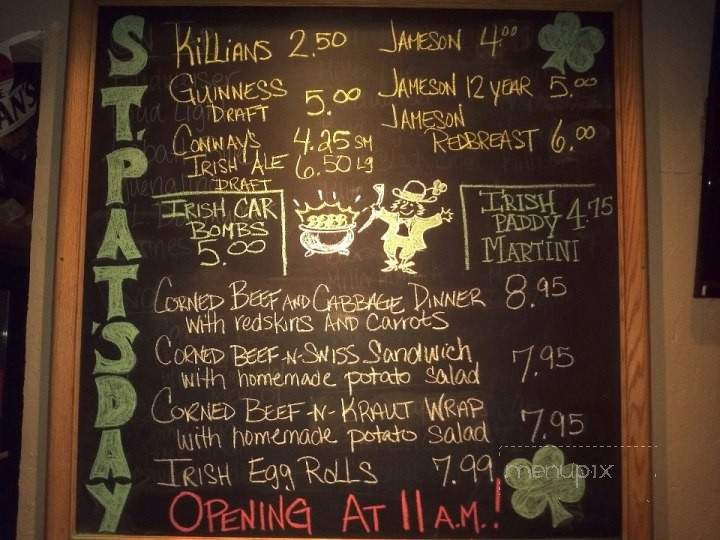 ST. PAT'S DAY
KiLLiANS 2.50
GUINNESS
DRAFT 5.00
CONWAY'S 4.25 SM
IRISH ALE 6.50 LG
DRAFT
JAMESON 4.00
JAMESON 12 YEAR 5.00
JAMESON
REDBREAST 6.00
IRISH CAR
BOMBS
5.00
IRISH
PADDY 4.75
MARTINI
CORNED BEEF AND CABBAGE DINNER 8.95
with redskins AND CARROTS
CORNED BEEF-N-SWISS SANdwich 7.95
with homemade potato salad
CORNED BEEF-N-KRAUT WRAP 7.95
with homemade potato salad
IRISH Egg ROLLS 7.99
OPENING AT 11 A.M.!
menupix